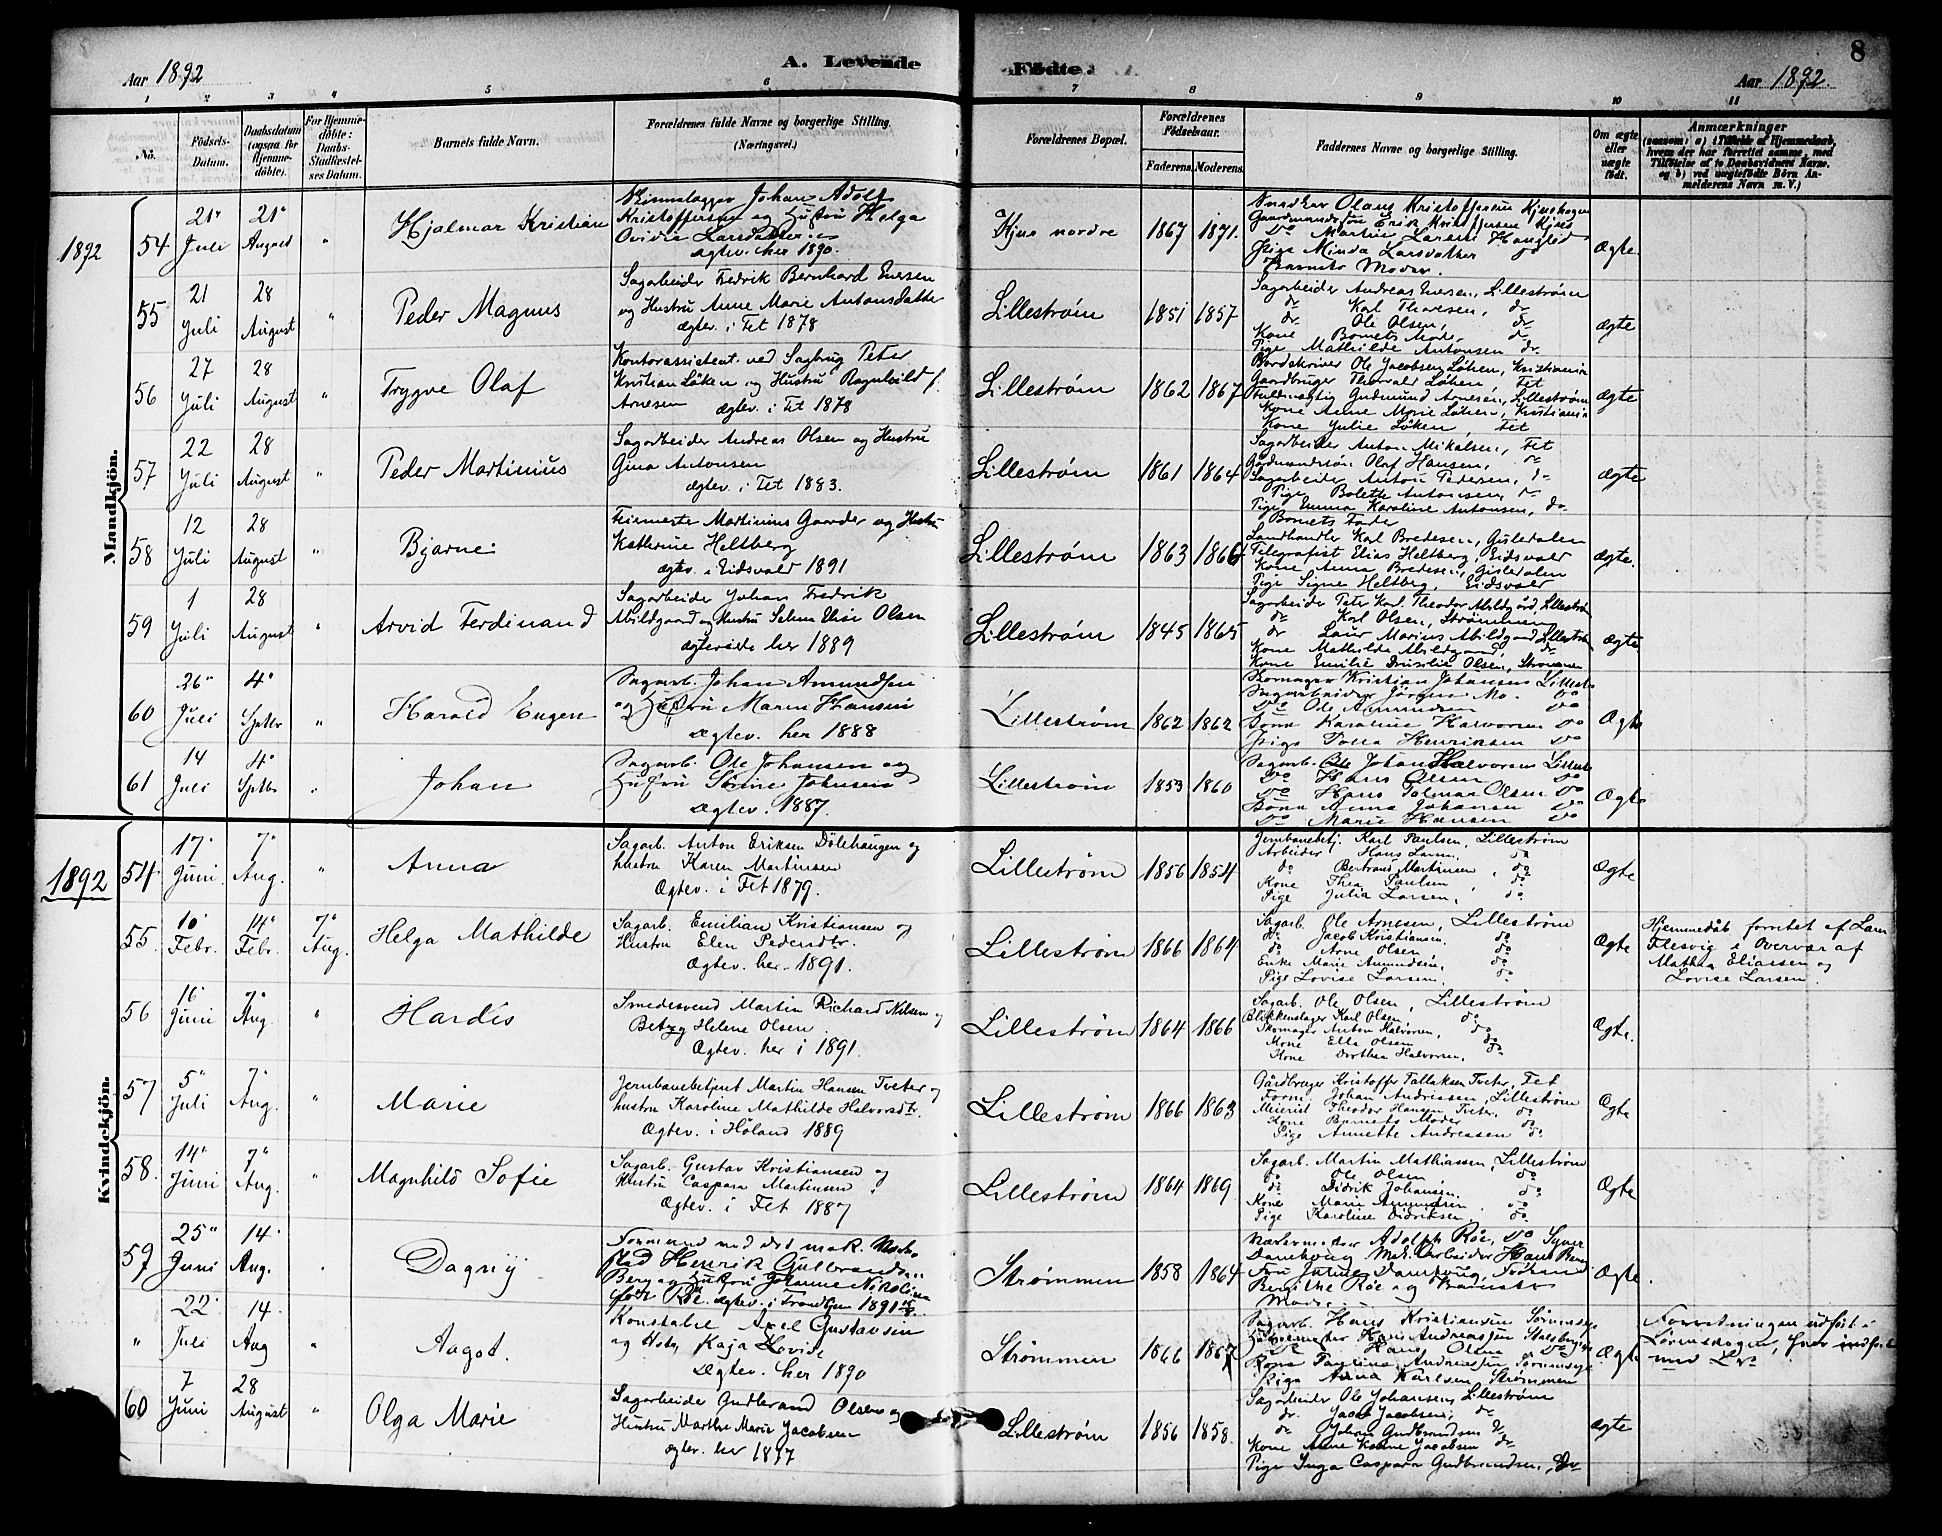 Aar 1892
A. Levende Fødte.
8
Aar 1892.
1 2 3 4 5 6 7 8 9 10 11
No.
Födsels-Datum.
Daabsdatum (ogsaa for Hjemmedöbte).
For Hjemmedöbte: Daabs-Stadfæstelses Datum.
Barnets fulde Navn.
Forældrenes fulde Navne og borgerlige Stilling. (Næringsvei.)
Forældrenes Bopæl.
Forældrenes Födselsaar.
Faderens. Moderens.
Faddernes Navne og borgerlige Stilling.
Om ægte eller uægte födt.
Anmærkninger
(saasom: a) i Tilfælde af Hjemmedaab, hvem der har forrettet samme, med Tilföielse af to Daabsvidners Navne, og b) ved uægtefödte Börn Anmelderens Navn m. V.)
Mandkjön.
1892
54 21 Juli 21 August " Hjalmar Kristian
Johan Adolf
Kristoffersen og Hustru Helga
Ovidia Larsdatter
ægtev. her 1890.
Kjus nordre 1867 1871.
Snedker Olaus Kristoffersen Kjushagen
Gaardmandssøn Erik Kristoffersen Kjus
Do Martin Larsen
Pige Minda Larsdatter
Barnets Moder.
Ægte
55 21 Juli 28 August " Peder Magnus
Sagarbeider Fredrik Bernhard Eversen
og Hustru Anne Marie Antonsdatter
ægtev. i Fet 1878
Lillestrøm 1851 1857
Sagarbeider Andreas Eversen, Lillestrøm
do Karl Thoresen, do
do Ole Olsen, do
Kone Barnets Moder, do
Pige Mathilde Antonsen do
ægte
56 27 Juli 28 August " Trygve Olaf
Kontorassistent ved Sagbrug Peter
Kristian Løken og Hustru Ragnhild f.
Arnesen ægtev. i Fet 1878
Lillestrøm 1862 1867
Bordskriver Ole Jacobsen Løken, Kristiania
Gaardbruger Thorvald Løken, Fet
Fuldmægtig Gudmund Arnesen, Lillestrøm
Kone Anne Marie Løken, Kristiania
Kone Julie Løken, Fet
ægte
57 22 Juli 28 August " Peder Martinius
Sagarbeider Andreas Olsen og Hustru
Gina Antonsen
ægtev. i Fet 1883.
Lillestrøm 1861 1864
Sagarbeider Anton Mikalsen, Fet
Gaardmandssøn Olaf Hansen, do
Sagarbeider Anton Pedersen, do
Pige Bolette Antonsen, do
Pige Emma Karoline Antonsen, do
ægte
58 12 Juli 28 August " Bjarne
Martinius Gaarder og Hustru
Katherine Heltberg
ægtev. i Eidsvold 1891
Lillestrøm 1863 1866
Barnets Fader
Landhandler Karl Bredesen, Gisledalen
Telegrafist Elias Heltberg, Eidsvold
Kone Anna Bredesen, Gisledalen
Pige Signe Heltberg, Eidsvold
ægte.
59 1 Juli 28 August " Arvid Ferdinand
Sagarbeider Johan Fredrik
Abildgaard og Hustru Selma Elise Olsen
ægteviede her 1889
Lillestrøm 1845 1865
Sagarbeider Peter Karl Theodor Abildgård, Lillestrøm
do Karl Olsen, Strømmen
do Laur Marius Abildgaard Lillestrøm
Kone Mathilde Abildgaard, do
Kone Emilie Olsen, Strømmen
ægte
60 26 Juli 4 Septbr " Harald Eugen
Sagarb. Johan Amundsen
og Hustru Maren Hansen
ægtev. her 1888
Lillestrøm 1862 1862
Skomager Kristian Johansen Lillestr
Sagarbeider Jørgen Mo. Do
Do Ole Amundsen Do
Kona Karoline Halvorsen Do
Pige Henriksen Do
Ægte
61 14 Juli 4 Septbr " Johan
Sagarb. Ole Johansen og
Hustru Sørine Johnsen
ægtev. 1887.
Lillestrøm 1853 1860
Sagarb. Johan Halvorsen Lillestr
Do Hans Olsen Do
Do Hans Olsen Do
Kona Anna Johansen Do
Do Marie Hansen Do
Ægte
Kvindekjön.
1892
54. 17 Juni. 7 Aug. " Anna
Sagarb. Anton Eriksen Dölehaugen og
hustru Karen Martinsen
Ægtev. i Fet 1879.
Lillestrøm 1856 1854
Jernbanebetj. Karl Paulsen, Lillestrøm
Arbeider Hans Larsen do
do Bertrand Martinsen, do
Kone Thea Paulsen, do
Pige Julia Larsen, do
Ægte
55. 10 Febr. 14 Febr. 7 Aug. Helga Mathilde
Sagarb. Emilian Kristiansen og
Hustru Elen Pedersdtr.
Ægtev. her 1891.
Lillestrøm 1866 1864
Sagarb. Ole Arnesen, Lillestrøm
do Jakob Kristiansen. do
do Arne Olsen do
Enke Marie Amundsen, do
Pige Lovise Larsen. do
Ægte
Hjemmedåb forrettet af Lars
Flesvig i Overvær af
Mathea Eliassen og
Lovise Larsen.
56 16 Juni 7 Aug. " Hardis
Smedesvend Martin Richard Nilsen og
Betzy Helene Olsen
Ægtev. her i 1891.
Lillestrøm 1864 1866
Sagarb. Ole Olsen, Lillestrøm
Blikkenslager Karl Olsen do
Skomager Anton Halvorsen, do
Kone Ella Olsen do
Kone Dorthea Halvorsen, do
Ægte.
57 5 Juli 7 Aug. " Marie
Jernbanebetjent Martin Hansen Tveter og
hustru Karoline Mathilde Halvorsdtr.
Ægtev. i Høland 1889
Lillestrøm 1866 1863
Gårdbruger Kristoffer Tallaksen Tveter, Fet
Johan Andreassen, Lillestrøm
Meierist Theodor Hansen Tveter, do
Kone Barnets Moder do
Pige Annette Andreasen do
Ægte
58. 14 Juni 7 Aug. " Magnhild Sofie
Sagarb. Gustav Kristiansen og
Hustru Caspara Martinsen
Ægtev. i Fet 1887
Lillestrøm 1864 1869
Sagarb. Martin Mathiassen, Lillestrøm
do Ole Olsen do
do Didrik Johansen. do
Kone Marie Amundsen. do
Pige Karoline Didriksen do
Ægte
59 25 Juni 14 Aug. " Dagny
Formand ved det mek. Værksted Henrik Gulbrandsen
Berg og Hustru Johanne Nikoline
født Röe. ægtev. i Trondhjem 1891
Strømmen 1858 1864
Adolph Röe, Do Syver
Damhaug, Mek. arbeider Hans
Damhaug,
Bergithe Röe og Barnets
Moder.
Ægte.
" 22 Juli 14 Aug " Aagot.
Konstabel Axel Gustavsen
og Hstr. Kaja Lovise
Ægtev. her 1890
Strømmen 1866 1867
Sagarb. Hans Kristiansen
Hans Andreassen
Do Hans Olsen Do
Kona Pauline Andreassen
Pige Anna Karlsen Strømmen
Ægte
Forretningen udført i
Lørenskogen, hvor indført
med No
60 7 Juni 28 August " Olga Marie
Sagarbeider Gudbrand Olsen og
Hustru Marthe Marie Jacobsen
ægtev. her 1877
Lillestrøm 1856 1858.
Sagarbeider Ole Johansen, Lillestrøm
do. Jacob Jacobsen, do
do Johan Gudbrandsen do
Kone Anne Karine Jacobsen do
Pige Inga Caspara Gudbrandsen, do
ægte